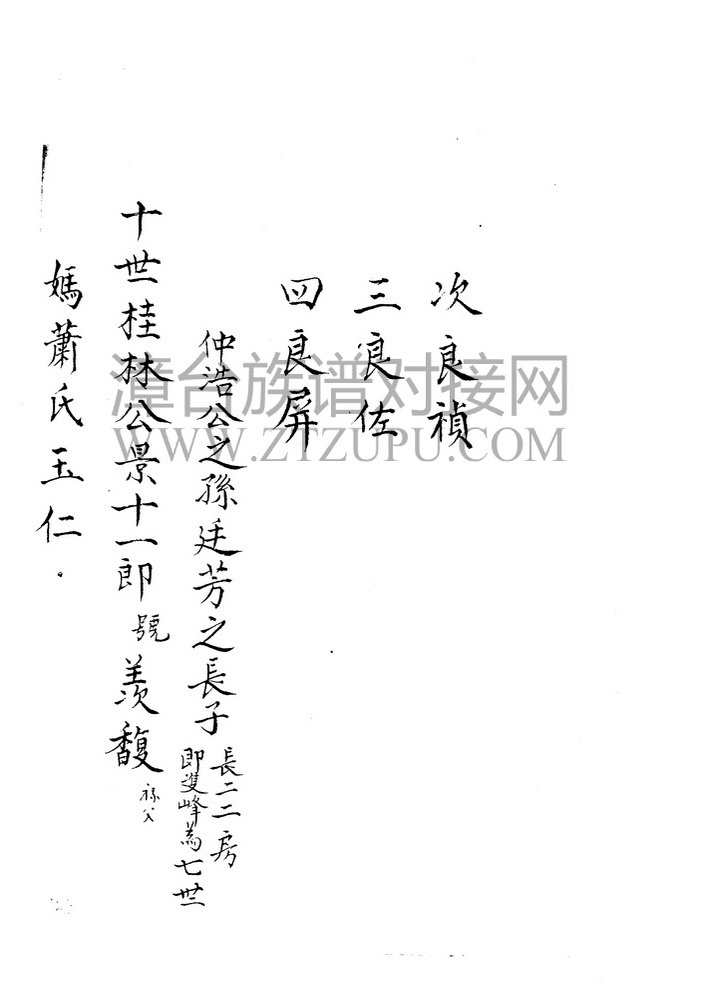 次良禎
三良佐
四良屏
仲浩公之孫廷芳之長子
長二二房
即雙峰為七世
十世桂林公景十一郎 號 羨馥
媽蕭氏玉仁.
漳台族谱对接网
WWW.ZTZUPU.COM